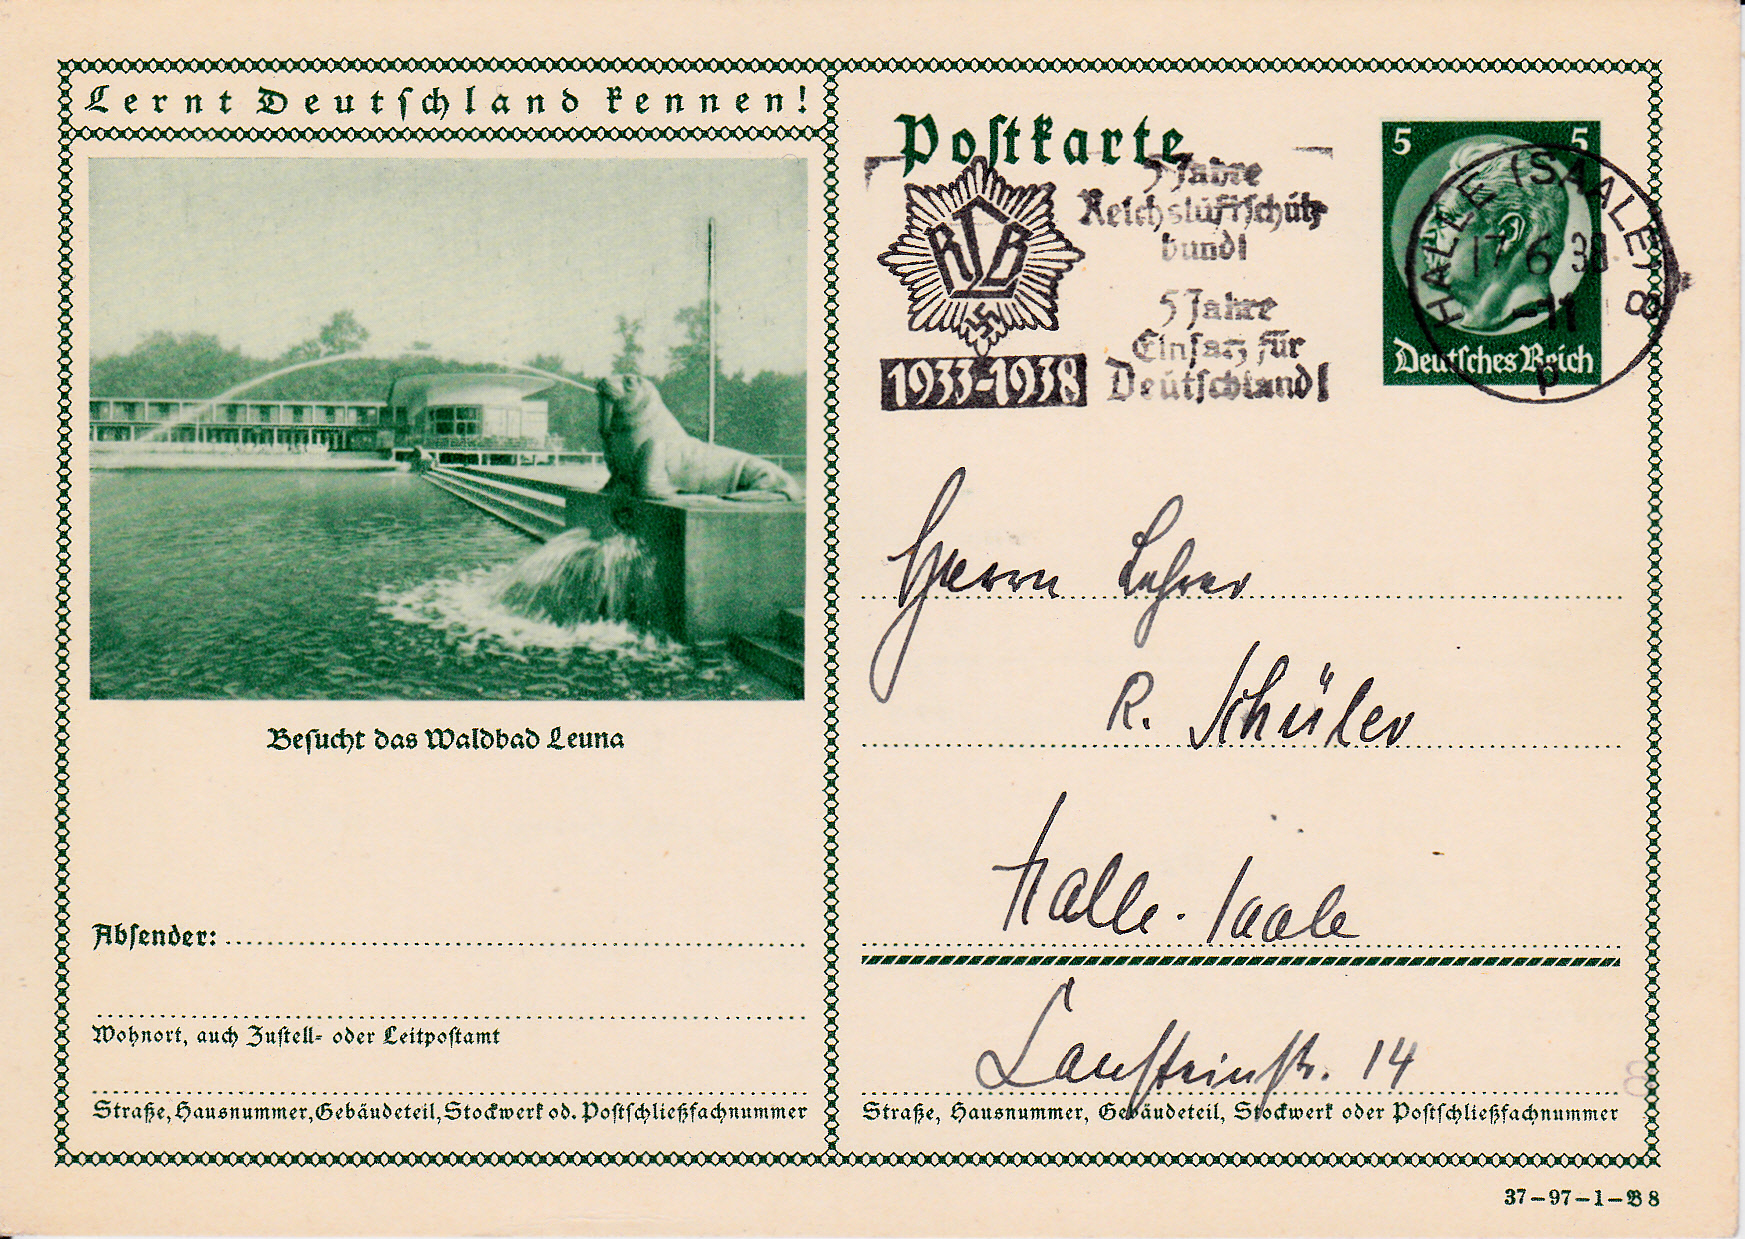 Lernt Deutschland kennen!
Besucht das Waldbad Leuna
Absender:
Wohnort, auch Zustell- oder Leitpostamt
Straße, Hausnummer, Gebäudeteil, Stockwerk od. Postschließfachnummer
Postkarte
RLB
1933-1938
5 Jahre
Reichsluftschutz
bund!
5 Jahre
Einsatz für
Deutschland!
5 5
Deutsches Reich
HALLE (SAALE) 8
17.6.38
-11
p
Herrn Lehrer
R. Schüler
Halle-Saale
14
Straße, Hausnummer, Gebäudeteil, Stockwerk oder Postschließfachnummer
37-97-1-B 8